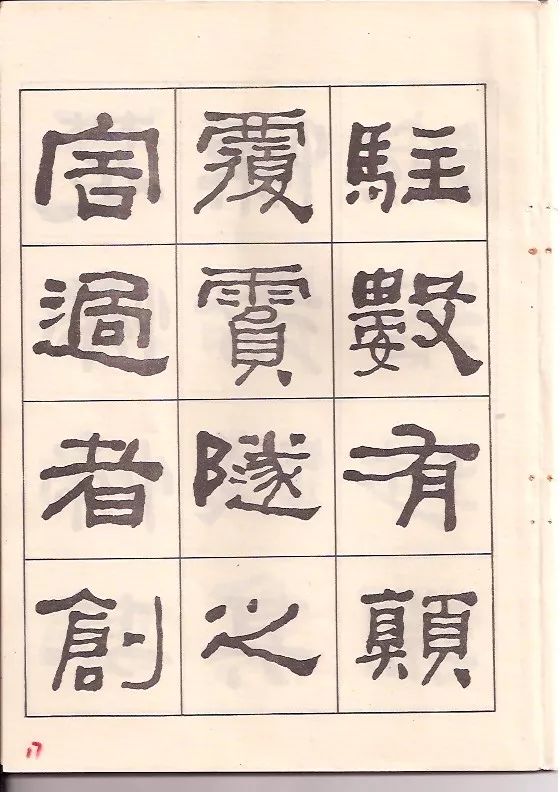 駐數有顛
覆霣隧之
害過者創
17